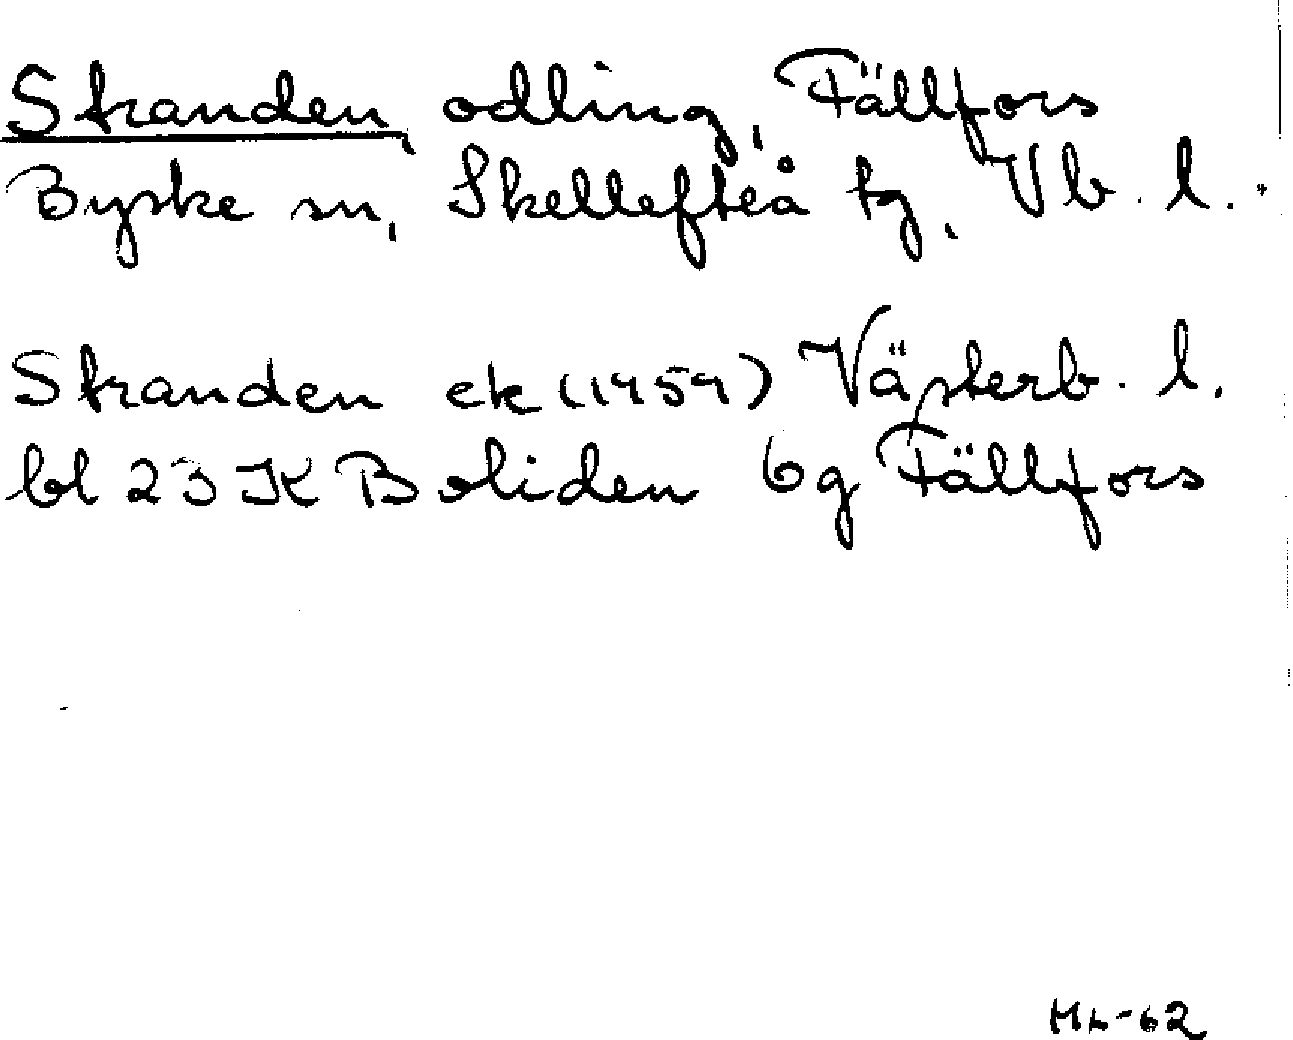 Stranden, odling, Fällfors
Byske sn, Skellefteå tg, Vb. l.
Stranden ek (1959) Västerb. l.
bl 23 JK Boliden 6g Fällfors
Hh-62